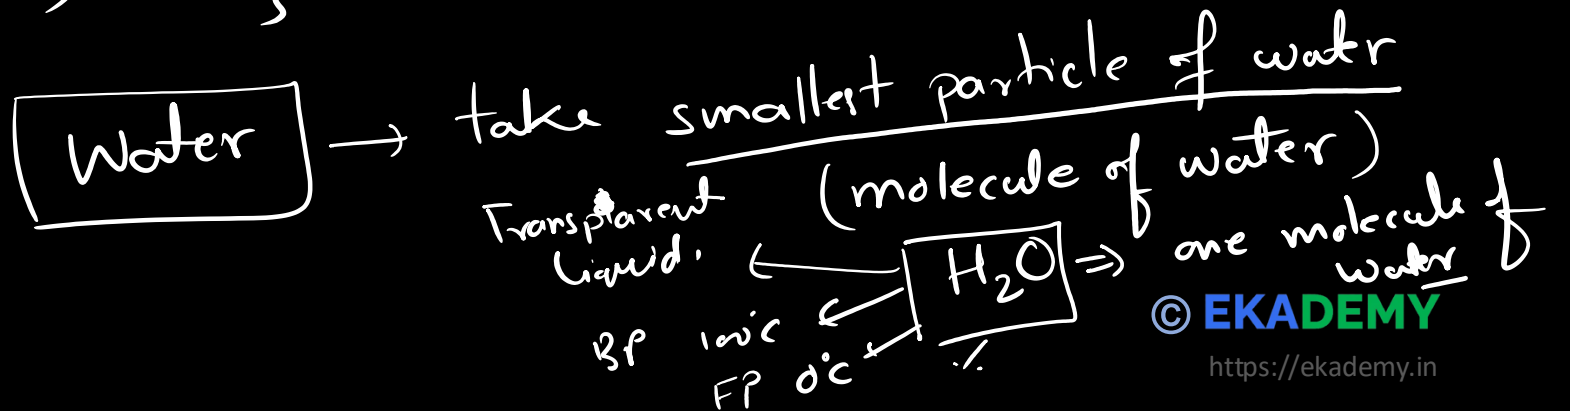 Water → take smallest particle of water
(molecule of water)
Transparent
liquid.
H₂O ⇒ one molecule of
water
BP 100°C
FP 0°C
© EKADEMY
https://ekademy.in